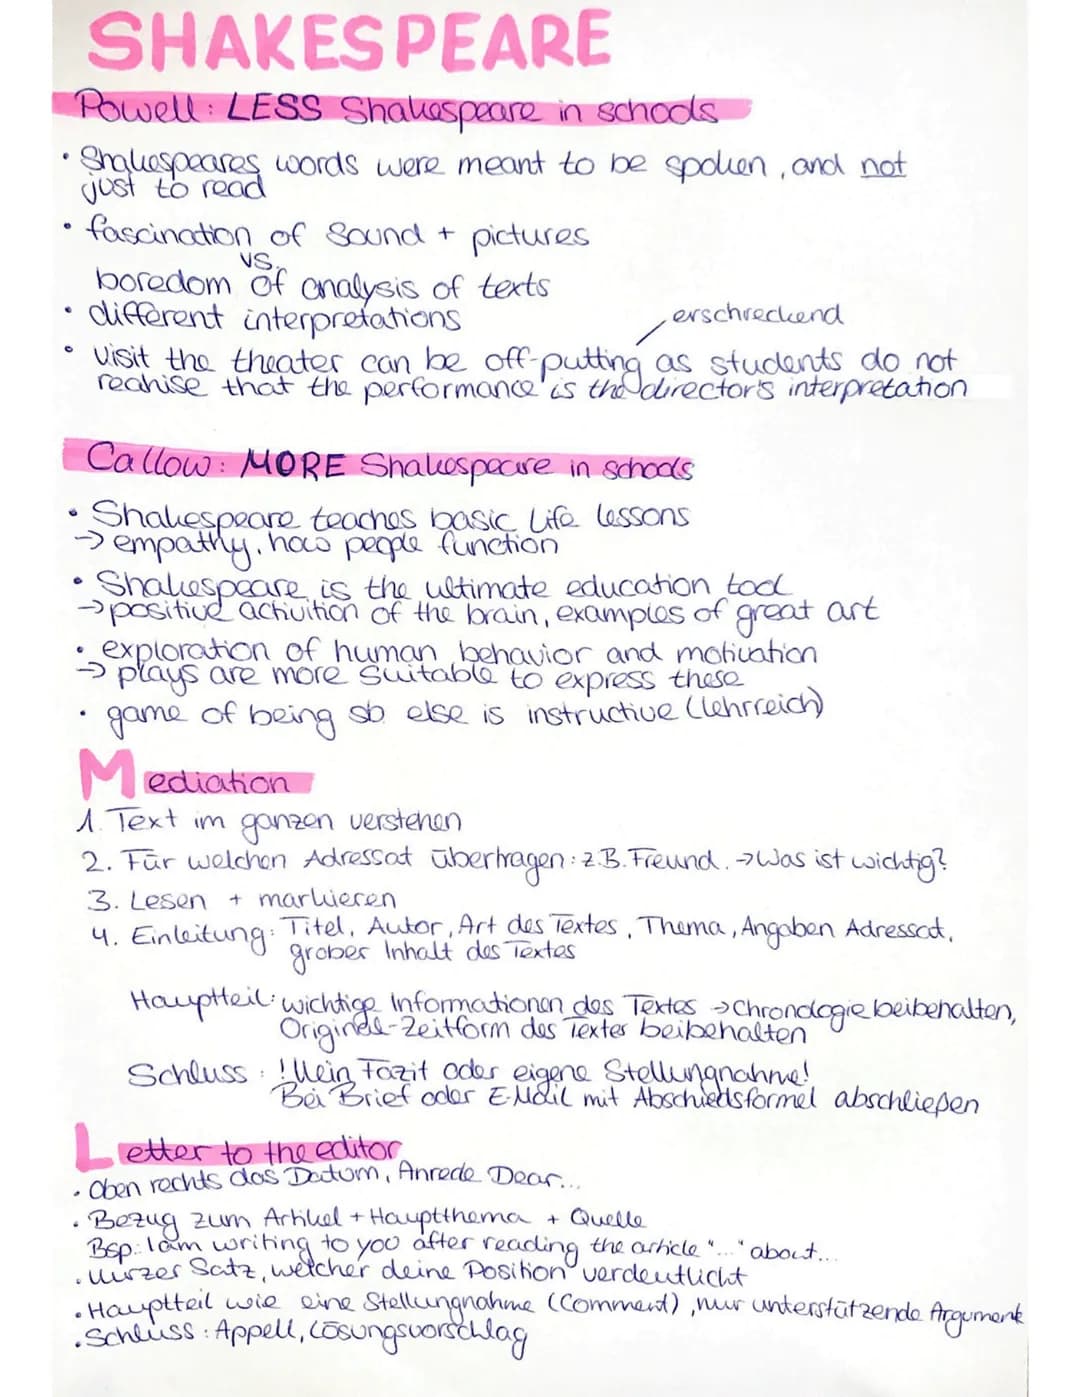 SHAKESPEARE
Powell: LESS Shakespeare in schools
• Shakespeares words were meant to be spoken, and not
just to read
• fascination of sound + pictures
vs.
boredom of analysis of texts
• different interpretations
erschreckend
• visit the theater can be off-putting as students do not
realise that the performance is the director's interpretation
Callow: MORE Shakespeare in schools
• Shakespeare teaches basic life lessons
→ empathy, how people function
• Shakespeare is the ultimate education tool
→ positive activition of the brain, examples of great art
• exploration of human behavior and motivation
→ plays are more suitable to express these
• game of being sb else is instructive (lehrreich)
Mediation
1. Text im ganzen verstehen
2. Für welchen Adressat übertragen: z.B. Freund. → Was ist wichtig?
3. Lesen + markieren
4. Einleitung: Titel, Autor, Art des Textes, Thema, Angaben Adressat,
grober Inhalt des Textes
Hauptteil: wichtige Informationen des Textes → Chronologie beibehalten,
Original-Zeitform des Textes beibehalten
Schluss: !Kein Fazit oder eigene Stellungnahme!
Bei Brief oder E-Mail mit Abschiedsformel abschließen
Letter to the editor
• Oben rechts das Datum, Anrede Dear...
• Bezug zum Artikel + Hauptthema + Quelle
Bsp: I am writing to you after reading the article "..." about...
• kurzer Satz, welcher deine Position verdeutlicht
• Hauptteil wie eine Stellungnahme (Comment), nur unterstützende Argumente
• Schluss: Appell, Lösungsvorschlag